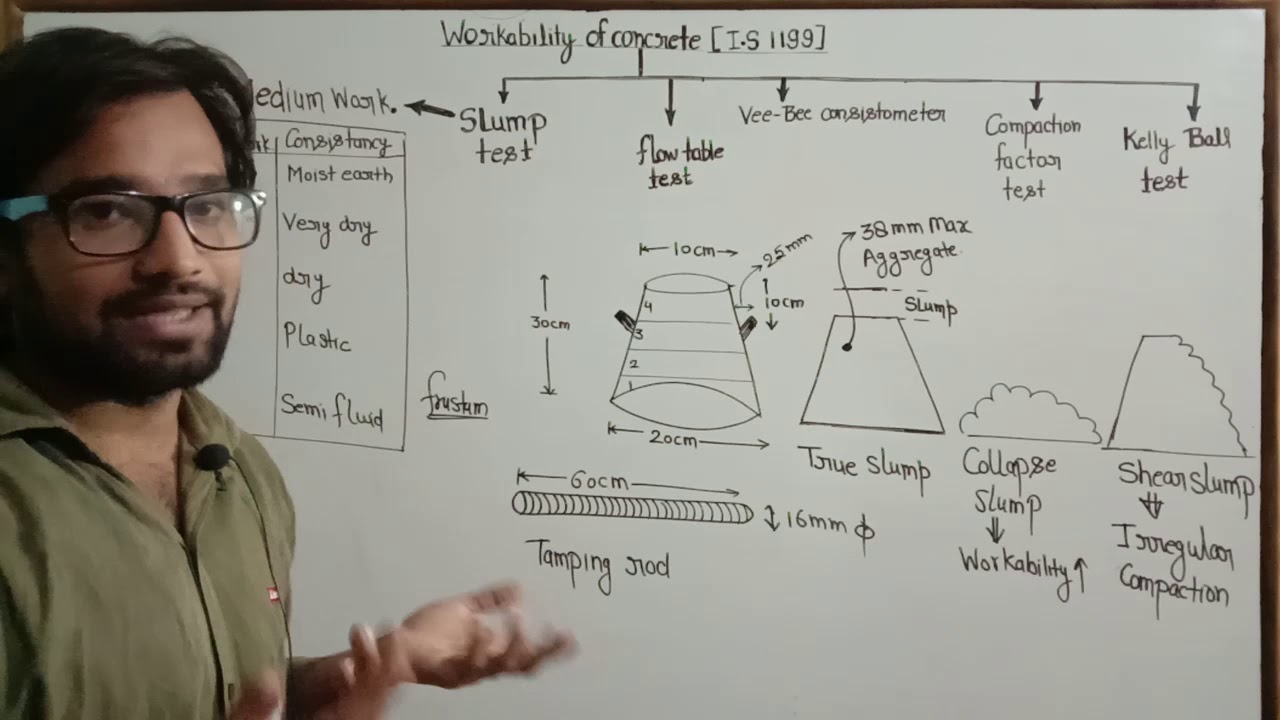 Workability of concrete [I.S 1199]
Medium Work.
Slump
test
flow table
test
Vee-Bee consistometer
Compaction
factor
test
Kelly Ball
test
Consistancy
Moist earth
Very dry
dry
Plastic
Semi fluid
frustum
10cm
25mm
10cm
30cm
4
3
2
1
20cm
38mm Max
Aggregate.
Slump
True Slump
Collapse
Slump
Workability↑
Shear slump
Irregular
Compaction
60cm
16mm ϕ
Tamping rod